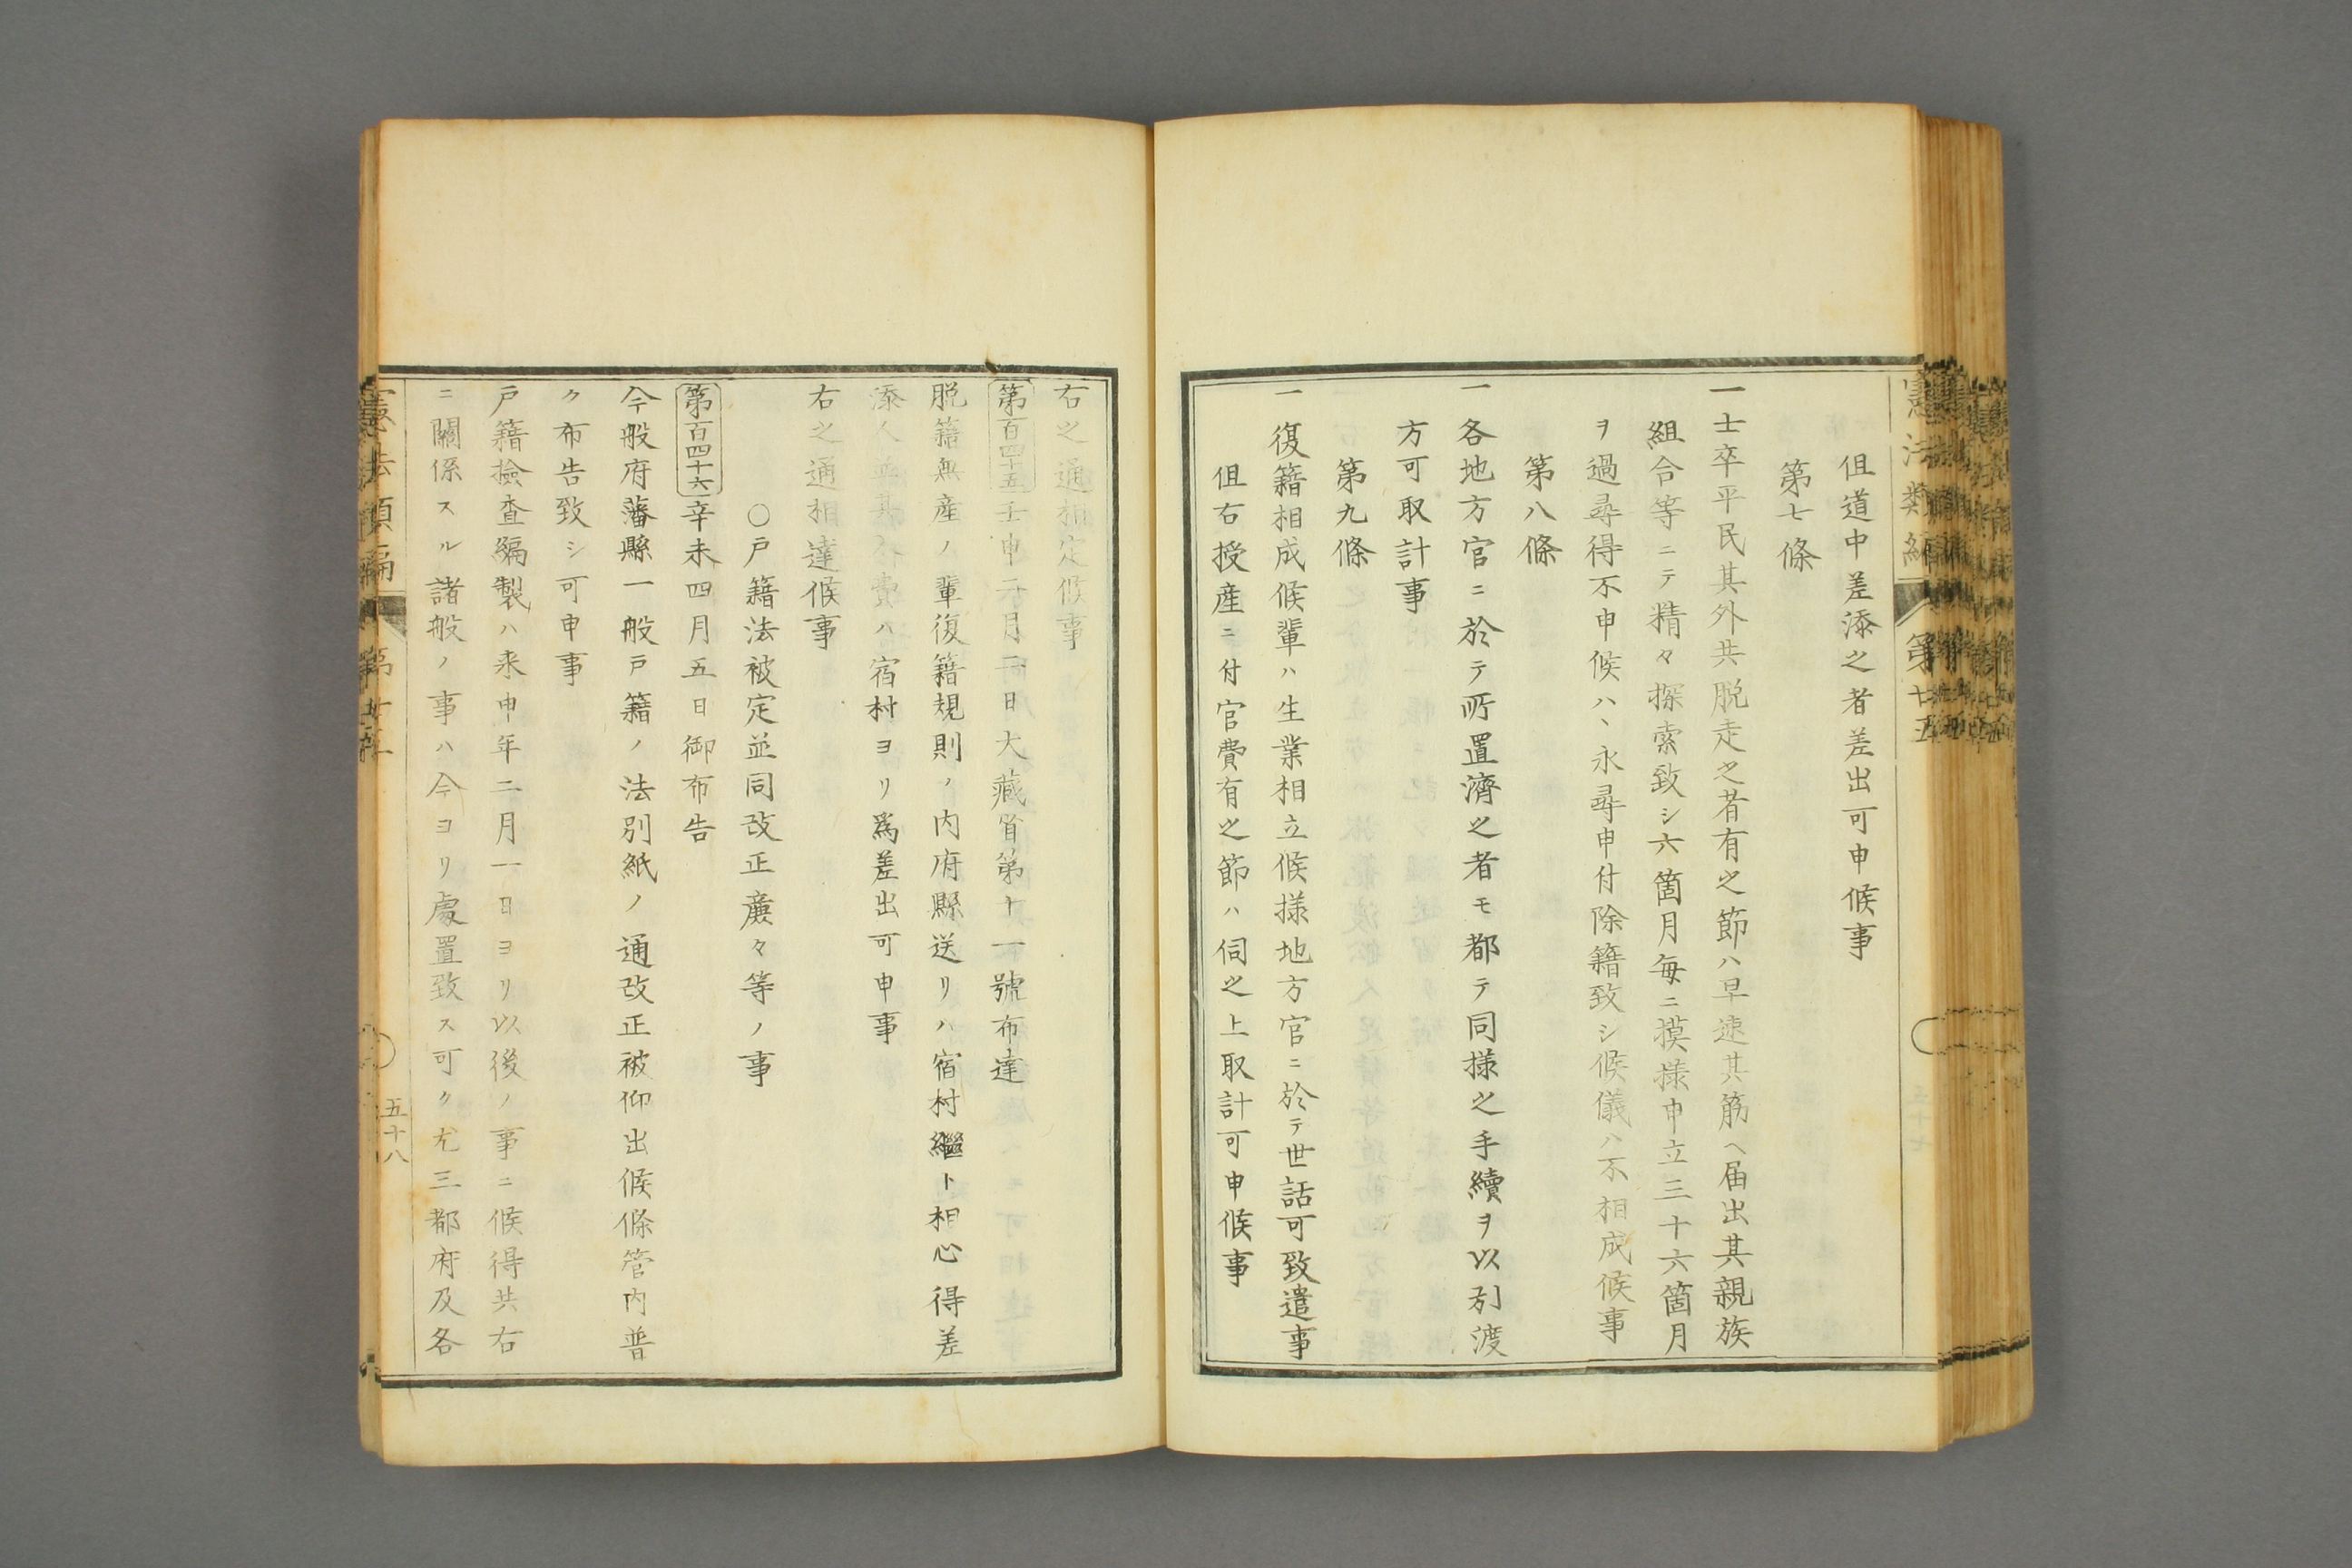 伹道中差添之者差出可申候事
第七條
一士卒平民其外共脱走之者有之節ハ早速其筋ヘ届出其親族
組合等ニテ精々探索致シ六箇月毎ニ摸様申立三十六箇月
ヲ過尋得不申候ハヽ永尋申付除籍致シ候儀ハ不相成候事
第八條
一各地方官ニ於テ所置濟之者モ都テ同様之手續ヲ以引渡
方可取計事
第九條
一復籍相成候輩ハ生業相立候様地方官ニ於テ世話可致遣事
伹右授産ニ付官費有之節ハ伺之上取計可申候事
右之通相定候事
第百四十五壬申 日大藏省第十一號布達
脱籍無産ノ輩復籍規則ノ内府縣送リハ宿村繼ト相心得差
添人 費ハ宿村ヨリ爲差出可申事
右之通相達候事
〇戸籍法被定並同改正廣々等ノ事
第百四十六辛未四月五日御布告
今般府藩縣一般戸籍ノ法別紙ノ通改正被仰出候條管内普
ク布告致シ可申事
戸籍撿查編製ハ来申年二月一日ヨリ以後ノ事ニ候得共右
ニ關係スル諸般ノ事ハ今ヨリ處置致ス可ク尤三都府及各
憲法類編
五十八